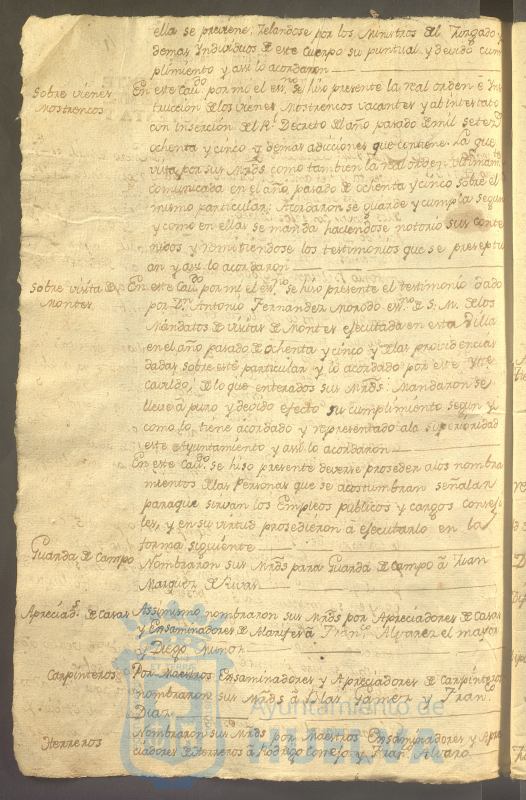 ella se previene, Zelandose por los Ministros del Juzgado y
demas Yndividuos de este Cuerpo su puntual y devido cum
plimiento y asi lo acordaron
Sobre vienes
Mostrencos
En este Cavdo. por mi el esno. se hiso presente la real orden e Yns
truicion de los vienes Mostrencos vacantes y abintestato
con insercion del Rl. Decreto del año pasado de mil setezs.
ochenta y cinco y demas adicciones que contiene: La que
vista por sus Mrds. como tambien la real orden
comunicada en el año pasado de ochenta y cinco sobre el
mismo particular; Acordaron se guarde y cumpla segun
y como en ellas se manda haciendose notorio sus conte
nidos y remitiendose los testimonios que se preseptu
an y asi lo acordaron
Sobre visita de
Montes
En este Cavdo. por mi el esno. se hiso presente el testimonio dado
por Dn. Antonio Fernandez Morodo esno. de S. M. de los
Mandatos de visitas de Montes ejecutada en esta Villa
en el año pasado de ochenta y cinco y de las providencias
dadas sobre este particular y lo acordado por este Yltre
cavildo; de lo que enterados sus Mrds: Mandaron se
lleve a puro y devido efecto su cumplimiento segun y
como lo tiene acordado y representado a la superioridad
este Ayuntamiento y asi lo acordaron
En este Cavdo. se hiso presente deverse proseder a los nombra
mientos de las Personas que se acostumbran señalar
para que sirvan los Empleos publicos y cargos conseji
les, y en su virtud prosedieron a ejecutarlo en la
forma siguiente
Guarda de Campo
Nombraron sus Mrds para Guarda de Campo a Juan
Marquez de Rivas
Apreciads. de Casas
Assimismo nombraron sus Mrds por Apreciadores de Casas
y Ensaminadores de Alarifes a Frano. Alvarez el mayor
y Diego Munoz
Carpinteros
Por Maestros Ensaminadores y Apreciadores de Carpinteros
nombraron sus Mrds a Blas Gamez y Frano.
Diaz
Herreros
Nombraron sus Mrds por Maestros Ensaminadores y Apre
ciadores de Herreros a Rodrigo Conejo y Frano. Alvaro
Ayuntamiento de
HUELVA